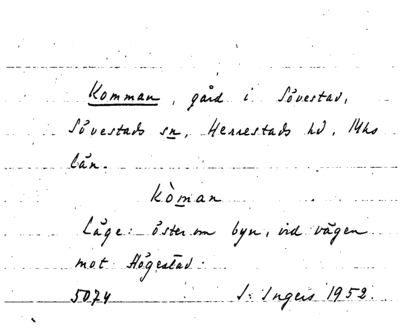 Komman, gård i Sövestad,
Sövestads sn, Herrestads hd, Mhs
län.
kòman
Läge: öster om byn, vid vägen
mot Högestad.
5074 I. Ingers 1952.